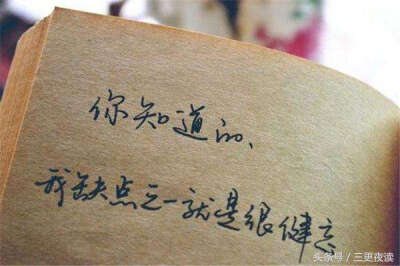 你知道的、
我缺点之一就是很健忘
头条号／三更夜读